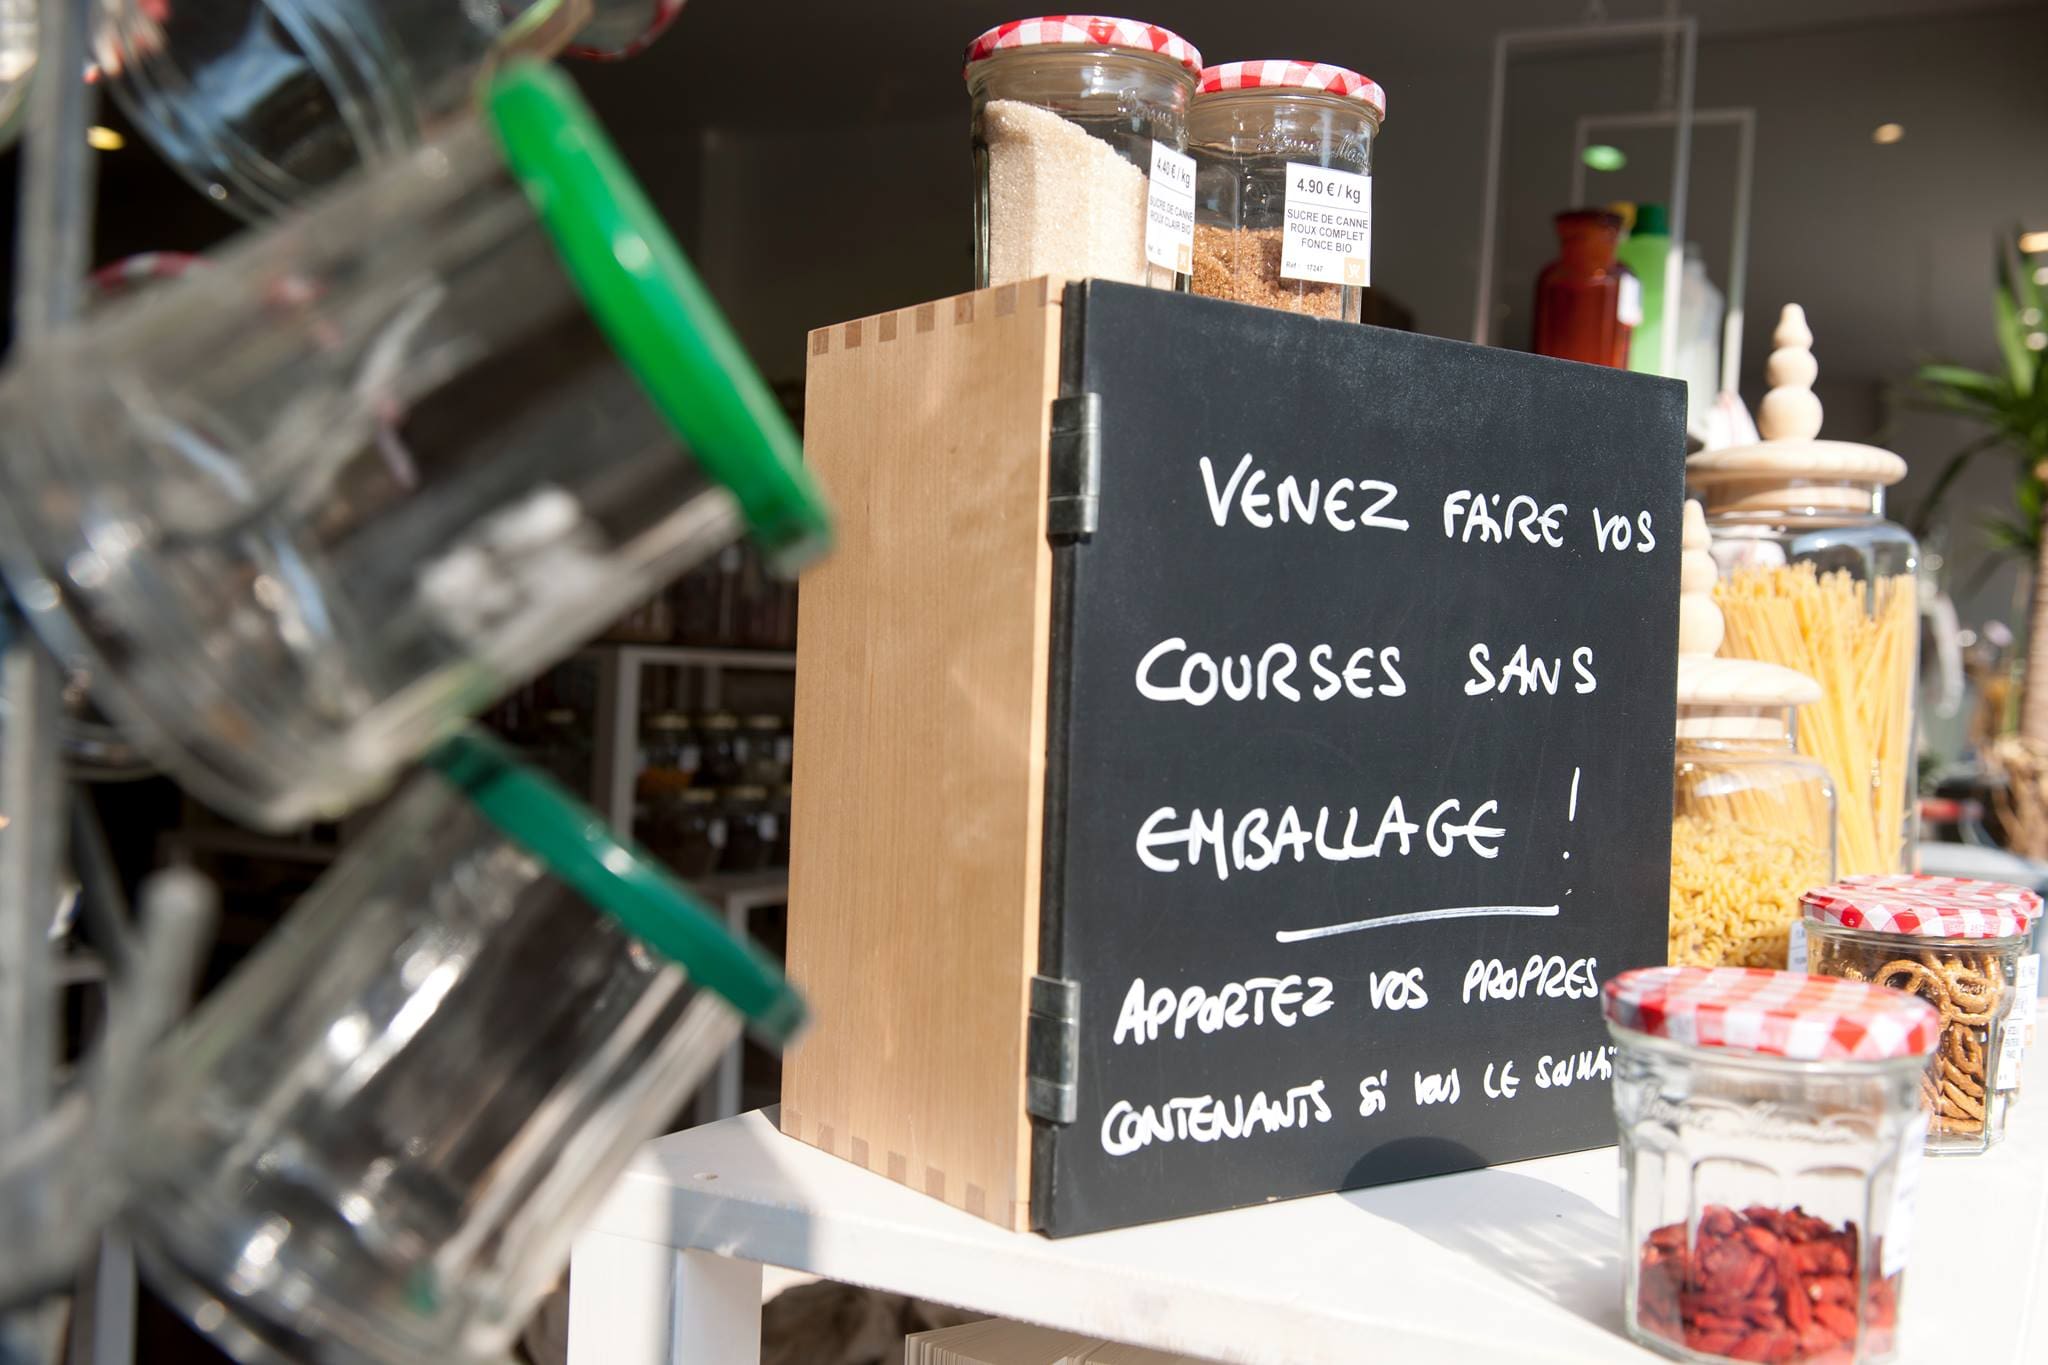 4.40 € / Kg
SUCRE DE CANNE
ROUX CLAIR BIO
4.90 € / kg
SUCRE DE CANNE
ROUX COMPLET
FONCE BIO
Réf : 17247
VENEZ FAIRE VOS
COURSES SANS
EMBALLAGE !
APPORTEZ VOS PROPRES
CONTENANTS Si VOUS LE SOUHAI